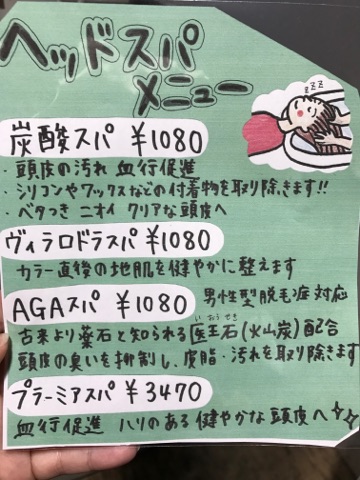 ヘッドスパ
メニュー
zzz
炭酸スパ ¥1080
・頭皮の汚れ 血行促進
・シリコンやワックスなどの付着物を取り除きます!!
・ベタつき ニオイ クリアな頭皮へ
ヴィラロドラスパ ¥1080
カラー直後の地肌を健やかに整えます
AGAスパ ¥1080 男性型脱毛症対応
いおうせき
古来より薬石と知られる医王石(火山炭)配合
頭皮の臭いを抑制し、皮脂・汚れを取り除きます
プラーミアスパ ¥3470
血行促進 ハリのある健やかな頭皮へ